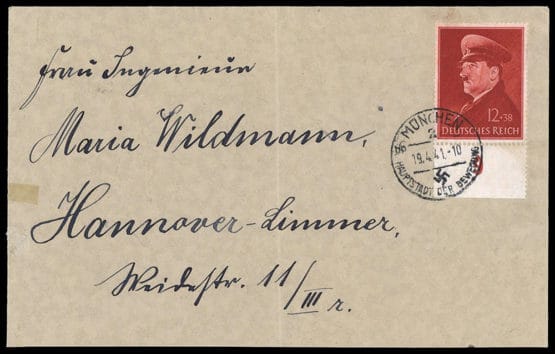 Frau Ingenieur
Maria Wildmann,
Hannover-Limmer,
Weidestr. 11/III r.
12+38
DEUTSCHES REICH
MÜNCHEN
19.4.41.-10
HAUPTSTADT DER BEWEGUNG